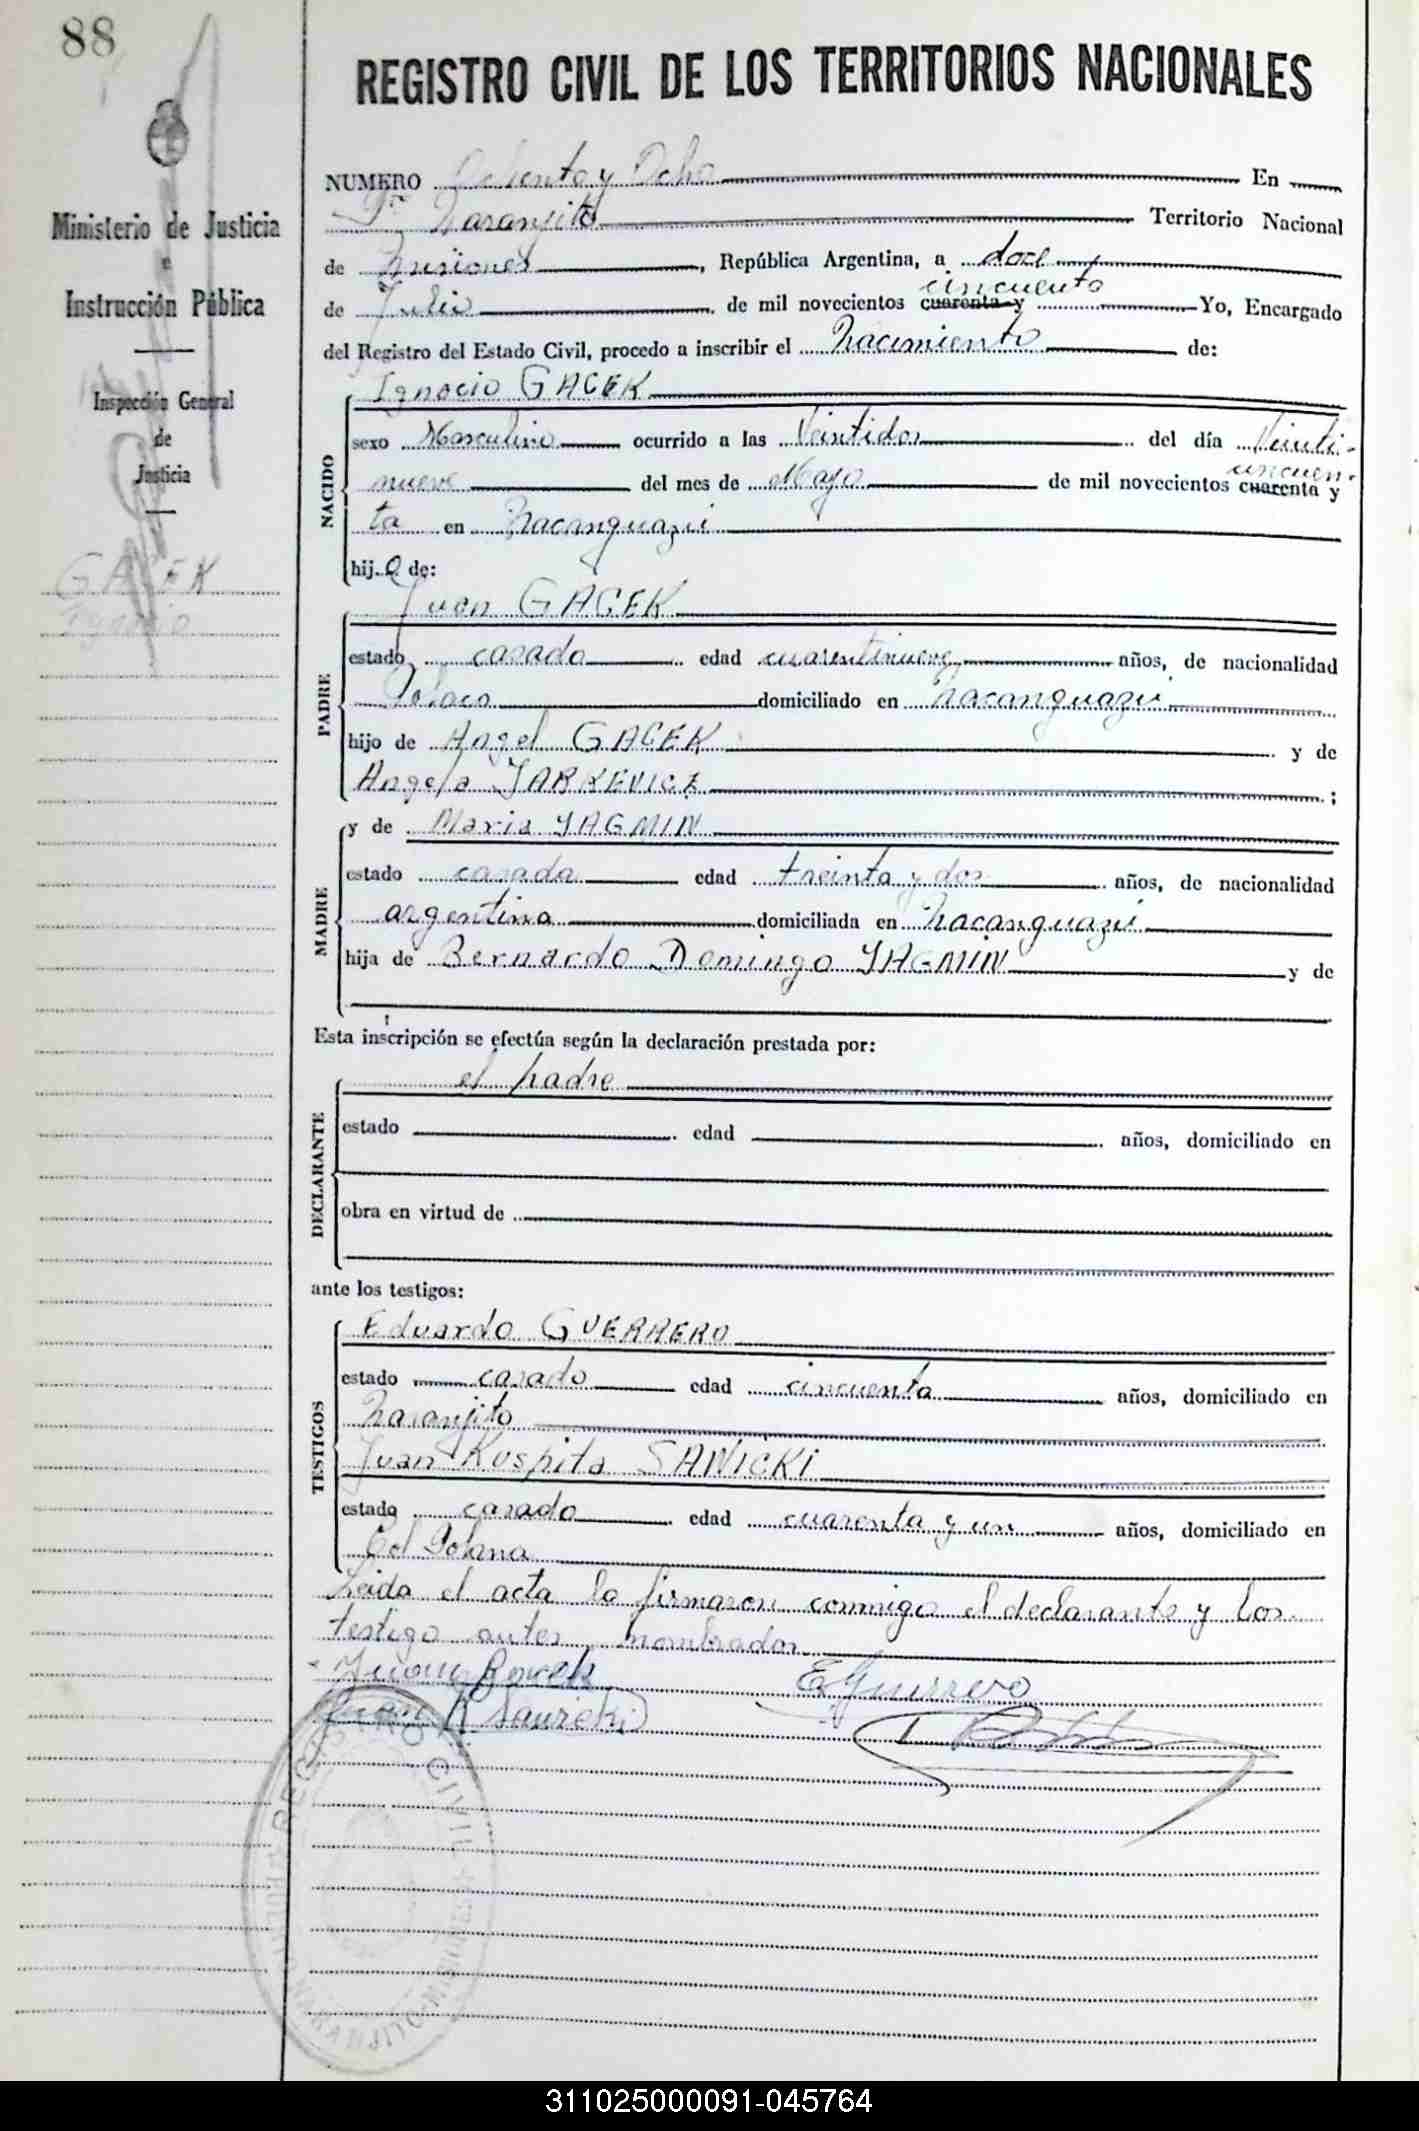 88
REGISTRO CIVIL DE LOS TERRITORIOS NACIONALES
Ministerio de Justicia
e
Instrucción Pública
Inspección General
de
Justicia
GACEK
Ignacio
NUMERO Ochenta y Ocho En
Naranjito Territorio Nacional
de Misiones, República Argentina, a doce
de Julio de mil novecientos cuarenta y cincuenta Yo, Encargado
del Registro del Estado Civil, procedo a inscribir el nacimiento de:
Ignacio GACEK
NACIDO
sexo Masculino ocurrido a las Veintidos del día Veinti-
nueve del mes de Mayo de mil novecientos cuarenta y cincuen-
ta en Ñacanguazú
hijo de:
Juan GACEK
PADRE
estado casado edad cuarentinueve años, de nacionalidad
Polaco domiciliado en Ñacanguazú
hijo de Angel GACEK y de
Angela JARKEVICZ;
MADRE
y de Maria JAGMIN
estado casada edad treinta y dos años, de nacionalidad
argentina domiciliada en Ñacanguazú
hija de Bernardo Domingo JAGMIN y de
Esta inscripción se efectúa según la declaración prestada por:
DECLARANTE
el padre
estado edad años, domiciliado en
obra en virtud de
ante los testigos:
TESTIGOS
Eduardo GUERRERO
estado casado edad cincuenta años, domiciliado en
Naranjito
Juan Kospita SAWICKI
estado casado edad cuarenta y un años, domiciliado en
Col Polana
Leida el acta la firmaron conmigo el declarante y los
testigo antes nombrados
Juan Gacek
E Guerrero
Juan K Sawicki
REGISTRO CIVIL
311025000091-045764